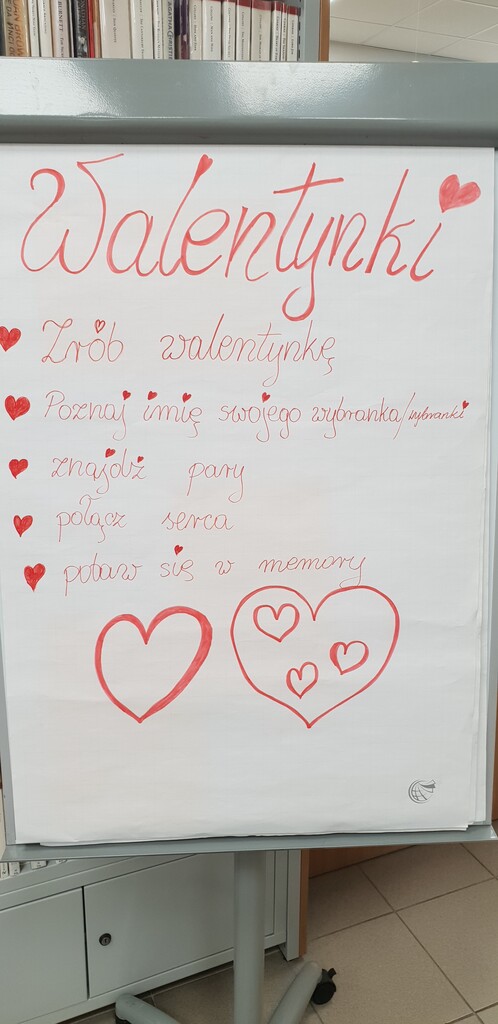 Walentynki
Zrób walentynkę
Poznaj imię swojego wybranka/wybranki
znajdź pary
połącz serca
pobaw się w memory